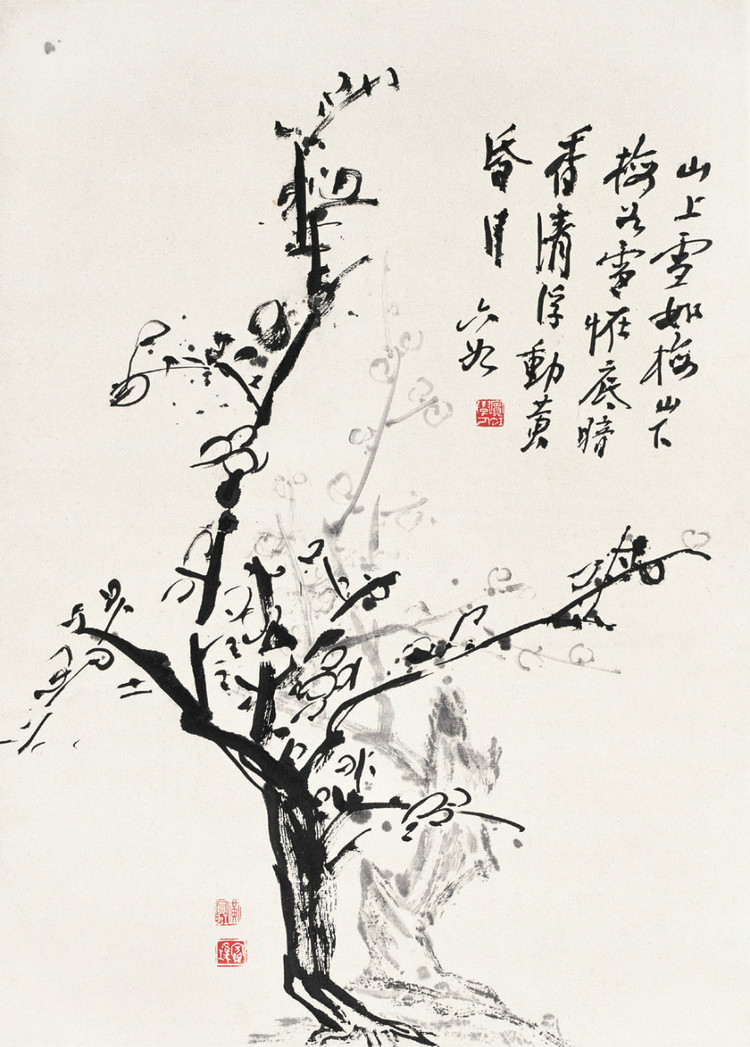 山上雪如梅山下
梅如雪恠底暗
香清浮動黄
昏月 六如